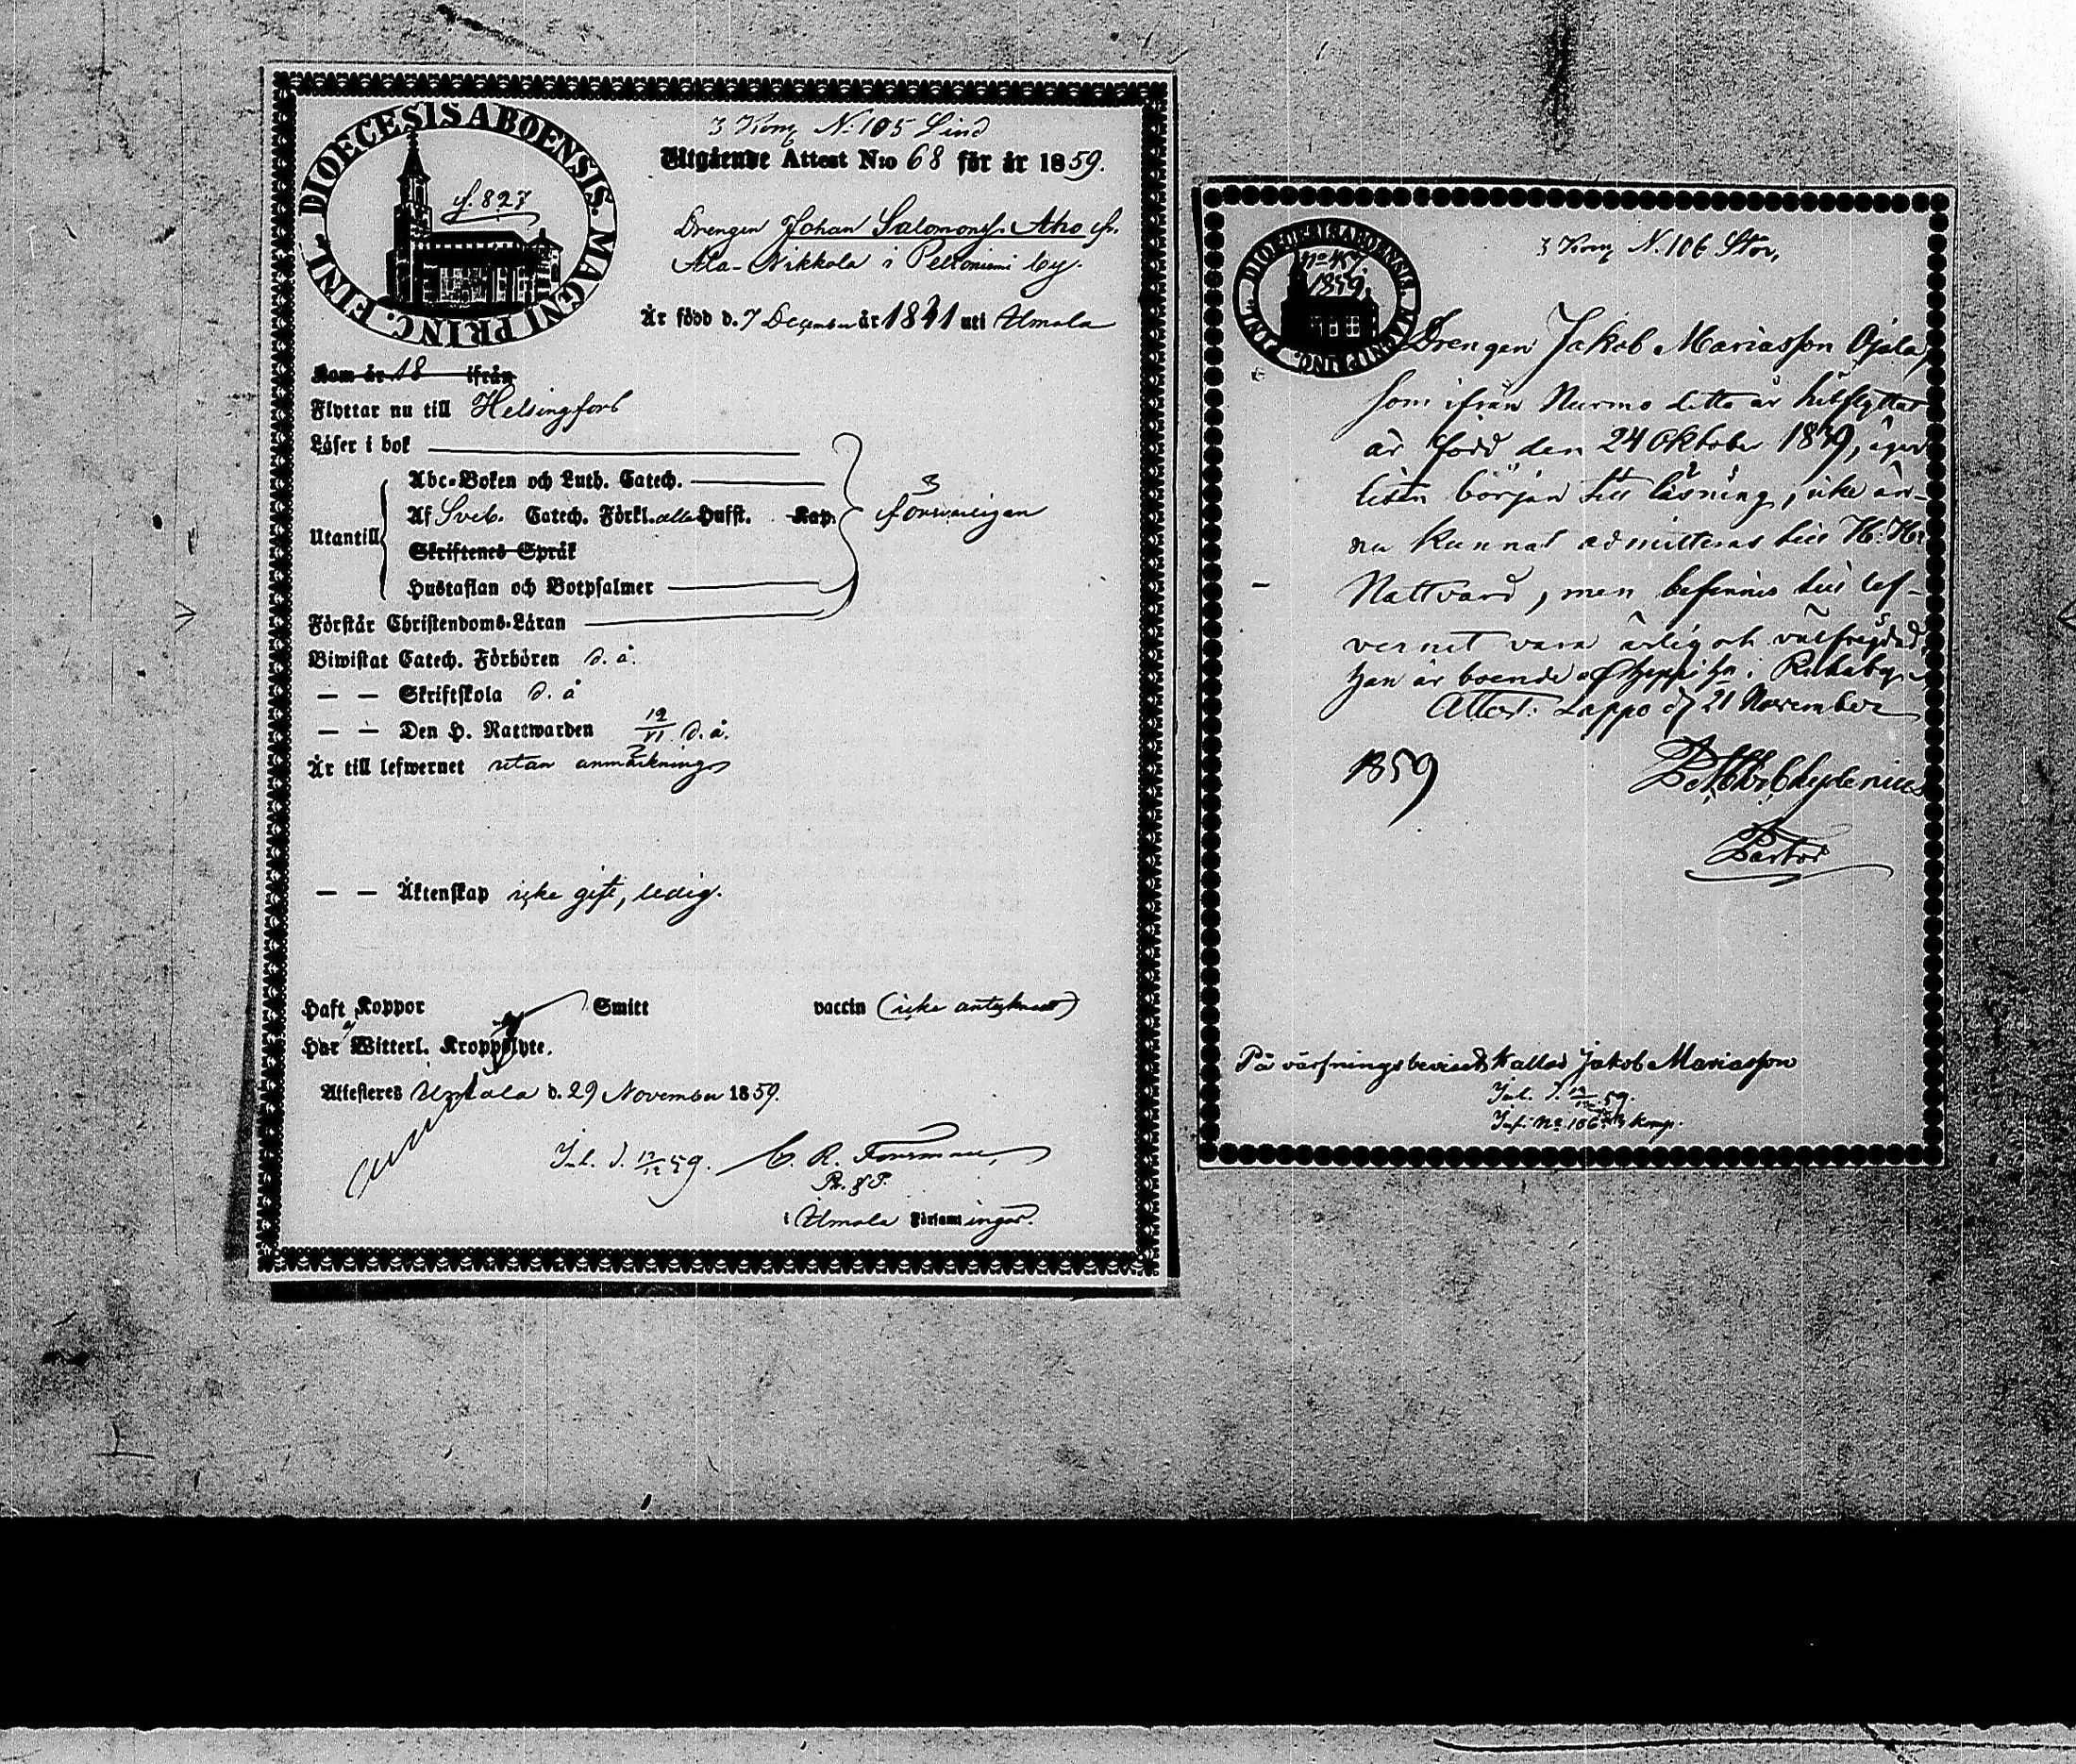 DIOECESIS ABOENSIS. MAGNI PRINC. FINL.
f. 827
3 Komp N: 105 Lind
Utgående Attest N:o 68 för år 1859.
Drengen Johan Salomonss. Aho fr.
Ala-Nikkola i Peltoniemi by.
Är född d. 7 December år 1841 uti Ilmola
Kom år 18 ifrån
Flyttar nu till Helsingfors
Läser i bok
Utantill
Abc-Boken och Luth. Catech.
Af Sveb. Catech. Förkl. alla Hufst. Kap.
Skriftenes Språk
Hustaflan och Botpsalmer
Förstår Christendoms-Läran
försvarligen
Biwistat Catech. Förhören d. å.
— — Skriftskola d. å
— — Den H. Nattwarden 19/VI d. å.
Är till lefwernet utan anmärkning
— — Äktenskap icke gift, ledig.
Haft Koppor Smitt vaccin (icke antecknadt)
Har Witterl. Kroppslyte.
Attesteres d. 29 November 1859.
Inl. d. 12/12 59.
C. R. Forsman
i Ilmola Församlingar.
DIOECESIS ABOENSIS. MAGNI PRINC. FINL.
1859.
3 Komp N. 106 Stor,
Drengen Jakob Mariasson Ojala,
som ifrån Nurmo detta år hitflyttat
är född den 24 Oktober 1839, eger
liten början till läsning, icke än-
nu kunnat admitteras till H. H:s
Nattvard, men befinnes till lef-
vernet vara ärlig och välfrejdad,
han är boende i Ruhaby.
Attest. Lappo d 21 November
1859
Pastor
På värfningsbeviset kallas Jakob Mariasson
Inl. d. 12/12 59.
Inf. No 106 3 Komp.